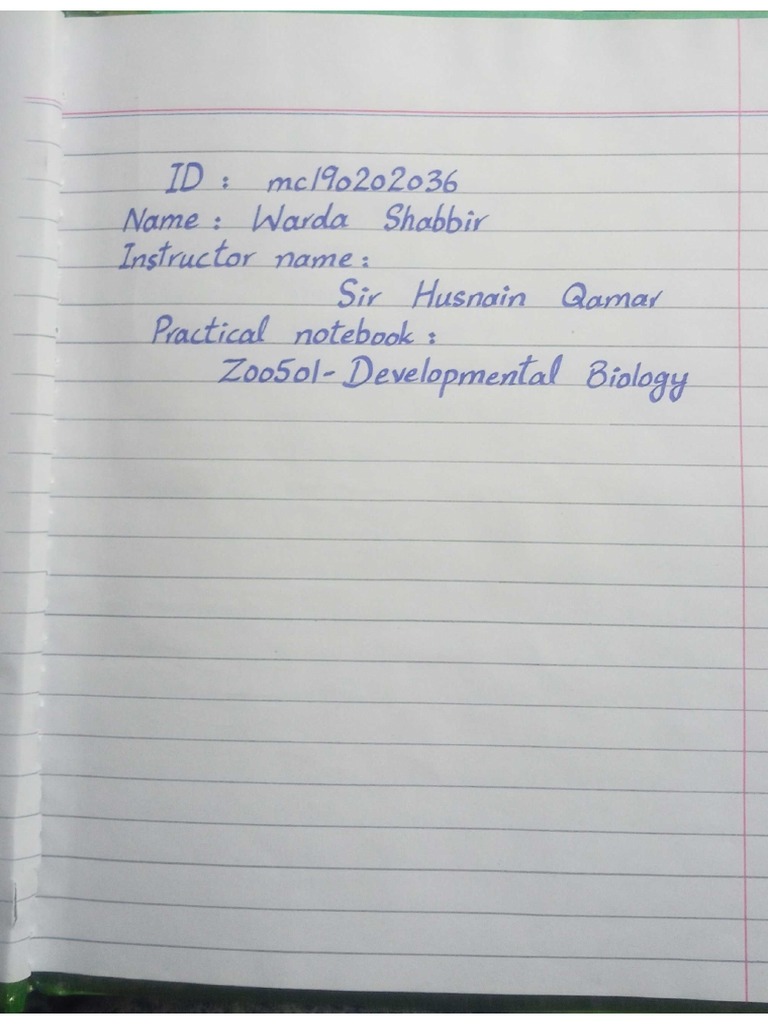 ID : mc190202036
Name : Warda Shabbir
Instructor name :
Sir Husnain Qamar
Practical notebook :
Zoo501- Developmental Biology